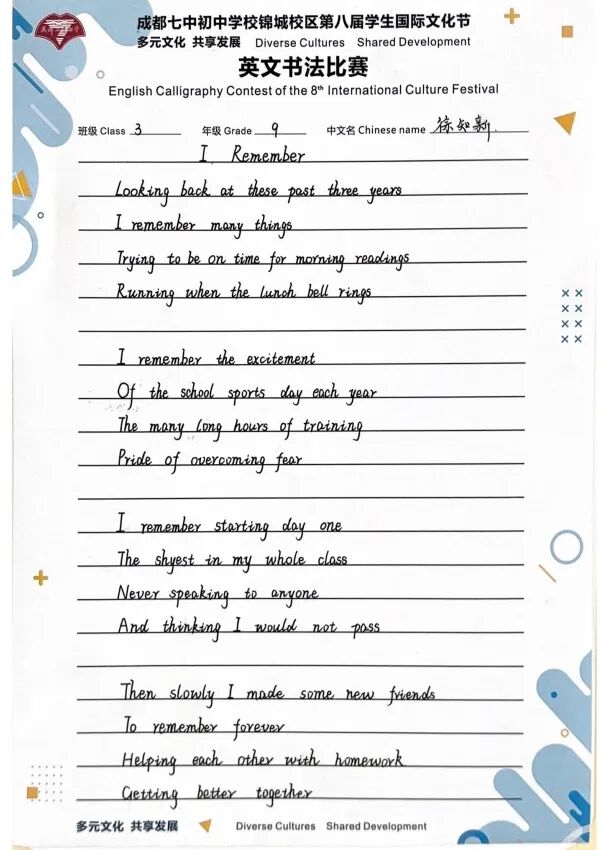 成都七中初中学校锦城校区第八届学生国际文化节
多元文化 共享发展 Diverse Cultures Shared Development
英文书法比赛
English Calligraphy Contest of the 8th International Culture Festival
班级 Class 3 年级 Grade 9 中文名 Chinese name 徐知新
I Remember
Looking back at these past three years
I remember many things
Trying to be on time for morning readings
Running when the lunch bell rings
I remember the excitement
Of the school sports day each year
The many long hours of training
Pride of overcoming fear
I remember starting day one
The shyest in my whole class
Never speaking to anyone
And thinking I would not pass
Then slowly I made some new friends
To remember forever
Helping each other with homework
Getting better together
多元文化 共享发展 Diverse Cultures Shared Development